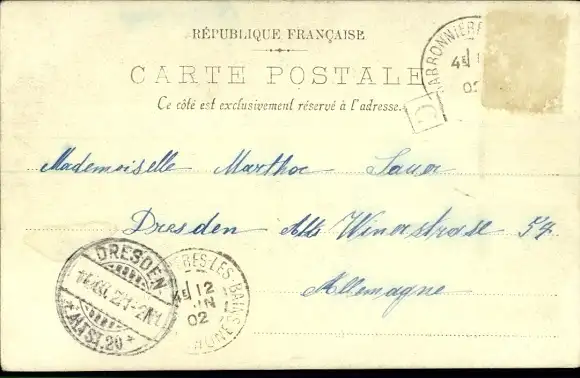 RÉPUBLIQUE FRANÇAISE
CARTE POSTALE
Ce côté est exclusivement réservé à l'adresse.
12
02
Mademoiselle Marthe Sauer
Dresden Alt Winerstrase 54
Allemagne
DRESDEN
ALTST. 20
RES-LES-BAINS
12
JUIN
02